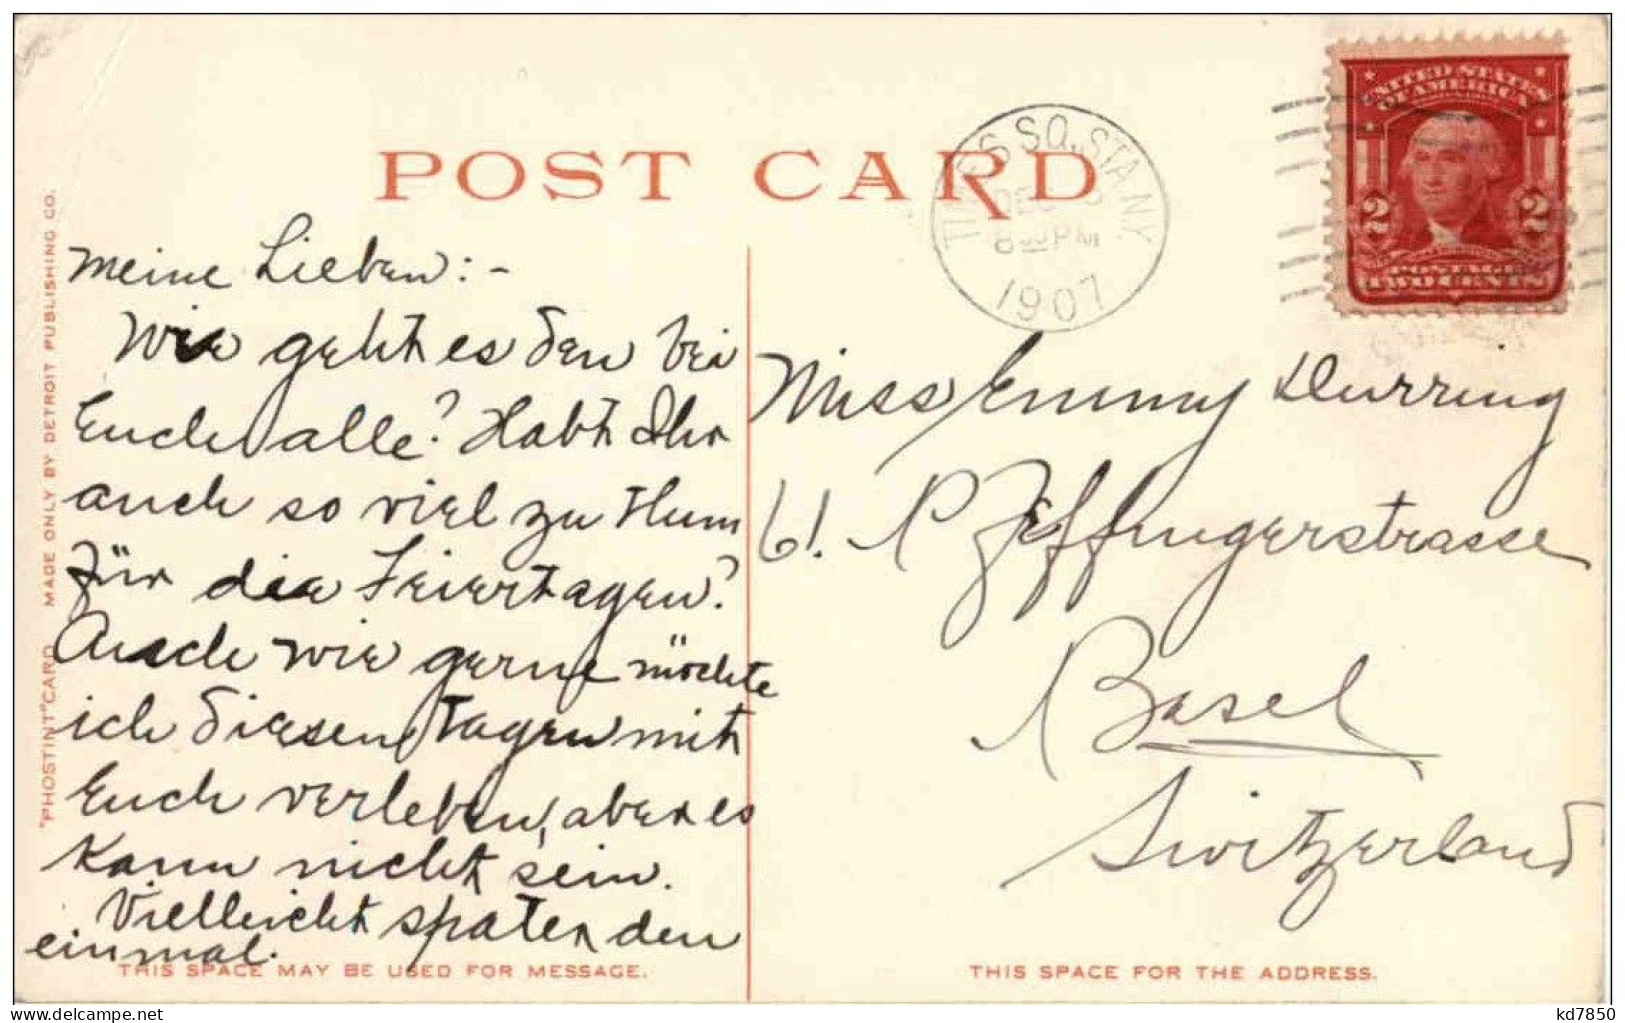 POST CARD
TIMES SQ. STA. N.Y.
DEC
8 30 PM
1907
UNITED STATES
OF AMERICA
2 2
POSTAGE
TWO CENTS
"PHOSTINT" CARD MADE ONLY BY DETROIT PUBLISHING CO.
Meine Lieben:-
Wie geht es den bei
Euch alle? Habt Ihr
auch so viel zu thun
für die Feiertagen?
Auch wie gerne möchte
ich diesen Tagen mit
Euch verleben, aber es
kann nicht sein.
Vielleicht spaten den
einmal.
Miss Emmy Durring
61. Pfeffingerstrasse
Basel
Switzerland
THIS SPACE MAY BE USED FOR MESSAGE.
THIS SPACE FOR THE ADDRESS.
delcampe.net
kd7850